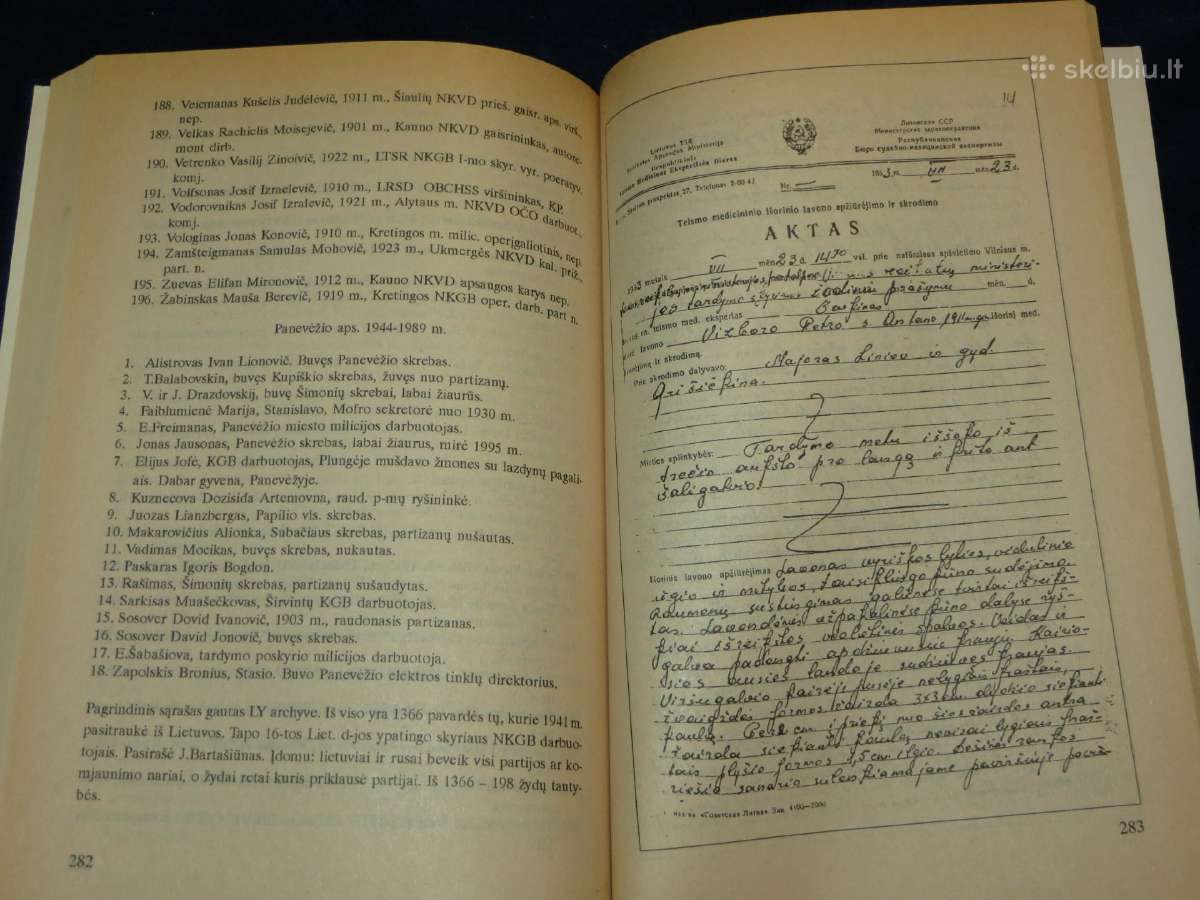 skelbiu.lt
188. Veicmanas Kušelis Judelevič, 1911 m., Šiaulių NKVD prieš. gaisr. aps. virš.,
nep.
189. Velkas Rachielis Moisejevič, 1901 m., Kauno NKVD gaisrininkas, autore-
mont dirb.
190. Vetrenko Vasilij Zinoivič, 1922 m., LTSR NKGB I-mo skyr. vyr. poeratyv.
komj.
191. Volfsonas Josif Izraelevič, 1910 m., LRSD OBCHSS viršininkas, KP.
192. Vodorovnikas Josif Izralevič, 1921 m., Alytaus m. NKVD OČO darbuot.,
komj.
193. Vologinas Jonas Konovič, 1910 m., Kretingos m. milic. operįgaliotinis, nep.
194. Zamšteigmanas Samulas Mohovič, 1923 m., Ukmergės NKVD kal. priž.,
part. n.
195. Zuevas Elifan Mironovič, 1912 m., Kauno NKVD apsaugos karys nep.
196. Žabinskas Mauša Berevič, 1919 m., Kretingos NKGB oper. darb. part n.
Panevėžio aps. 1944-1989 m.
1. Alistrovas Ivan Lionovič. Buvęs Panevėžio skrebas.
2. T.Balabovskin, buvęs Kupiškio skrebas, žuvęs nuo partizanų.
3. V. ir J. Drazdovskij, buvę Šimonių skrebai, labai žiaurūs.
4. Faiblumienė Marija, Stanislavo, Mofro sekretorė nuo 1930 m.
5. E.Freimanas, Panevėžio miesto milicijos darbuotojas.
6. Jonas Jausonas, Panevėžio skrebas, labai žiaurus, mirė 1995 m.
7. Elijus Jofė, KGB darbuotojas, Plungėje mušdavo žmones su lazdynų pagali-
ais. Dabar gyvena, Panevėžyje.
8. Kuznecova Dozisida Artemovna, raud. p-mų ryšininkė.
9. Juozas Lianzbergas, Papilio vls. skrebas.
10. Makarovičius Alionka, Subačiaus skrebas, partizanų nušautas.
11. Vadimas Mocikas, buvęs skrebas, nukautas.
12. Paskaras Igoris Bogdon.
13. Rašimas, Šimonių skrebas, partizanų sušaudytas.
14. Sarkisas Muašečkovas, Širvintų KGB darbuotojas.
15. Sosover Dovid Ivanovič, 1903 m., raudonasis partizanas.
16. Sosover David Jonovič, buvęs skrebas.
17. E.Šabašiova, tardymo poskyrio milicijos darbuotoja.
18. Zapolskis Bronius, Stasio. Buvo Panevėžio elektros tinklų direktorius.
Pagrindinis sąrašas gautas LY archyve. Iš viso yra 1366 pavardės tų, kurie 1941 m.
pasitraukė iš Lietuvos. Tapo 16-tos Liet. d-jos ypatingo skyriaus NKGB darbuo-
tojais. Pasirašė J.Bartašiūnas. Įdomu: lietuviai ir rusai beveik visi partijos ar ko-
mjaunimo nariai, o žydai retai kuris priklausė partijai. Iš 1366 - 198 žydų tauty-
bės.
282
14
Lietuvos TSR
Sveikatos Apsaugos Ministerija
Respublikinis
Teismo Medicinos Ekspertizės Biuras
Литовская ССР
Министерство здравоохранения
Республиканское
Бюро судебно-медицинской экспертизы
prospektas 27. Telefonas 2-00-42
Nr. —
1953 m. VII mėn. 23 d.
Teismo medicininio išorinio lavono apžiūrėjimo ir skrodimo
AKTAS
1953 metais VII mėn. 23 d. 14 30 val. prie natūralaus apšvietimo Vilniaus m.
reikalų ministeri-
jos tardymo skyriaus žodiniu prašymu mėn. d.
teismo med. ekspertas
lavono Vizboro Petro s. Antano 1911 m. išorinį med.
apžiūrėjimą ir skrodimą.
Prie skrodimo dalyvavo: Majoras Liniov ir gyd.
Grišečkina.
Mirties aplinkybės: Tardymo metu iššoko iš
trečio aukšto pro langą ir krito ant
šaligatvio.
Išorinis lavono apžiūrėjimas Lavonas vyriškos lyties, vidutinio
ūgio ir mitybos, taisyklingo kūno sudėjimo.
Raumenų sustingimas galūnėse tvirtai išreikš-
tas. Lavondėmės užpakalinėse kūno dalyse ryš-
kiai išreikštos violetinės spalvos. Veidas ir
galva padengti apdžiuvusiu krauju. Kairio-
sios ausies landoje sudžiuvęs kraujas.
Viršugalvio kairėje pusėje nelygiais kraštais,
žvaigždės formos žaizda 3x3 cm dydžio siekianti
kaulą. cm į priekį nuo šios žaizdos antra
žaizda siekianti kaulą neaižai lygiais kraš-
tais plyšio formos 1,5 cm ilgio. Dešinės rankos
riešio sąnario sulenkiamajame paviršiuje
«Советская Литва» Зак.
283